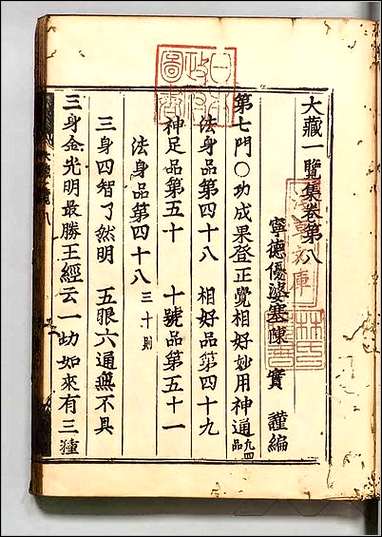 大藏一覽集卷第八
寧德優婆塞陳實謹編
第七門○功成果登正覺相好妙用神通四九品
法身品第四十八 相好品第四十九
神足品第五十 十號品第五十一
法身品第四十八 三十則
三身四智了然明 五眼六通無不具
三身金光明最勝王經云一切如來有三種